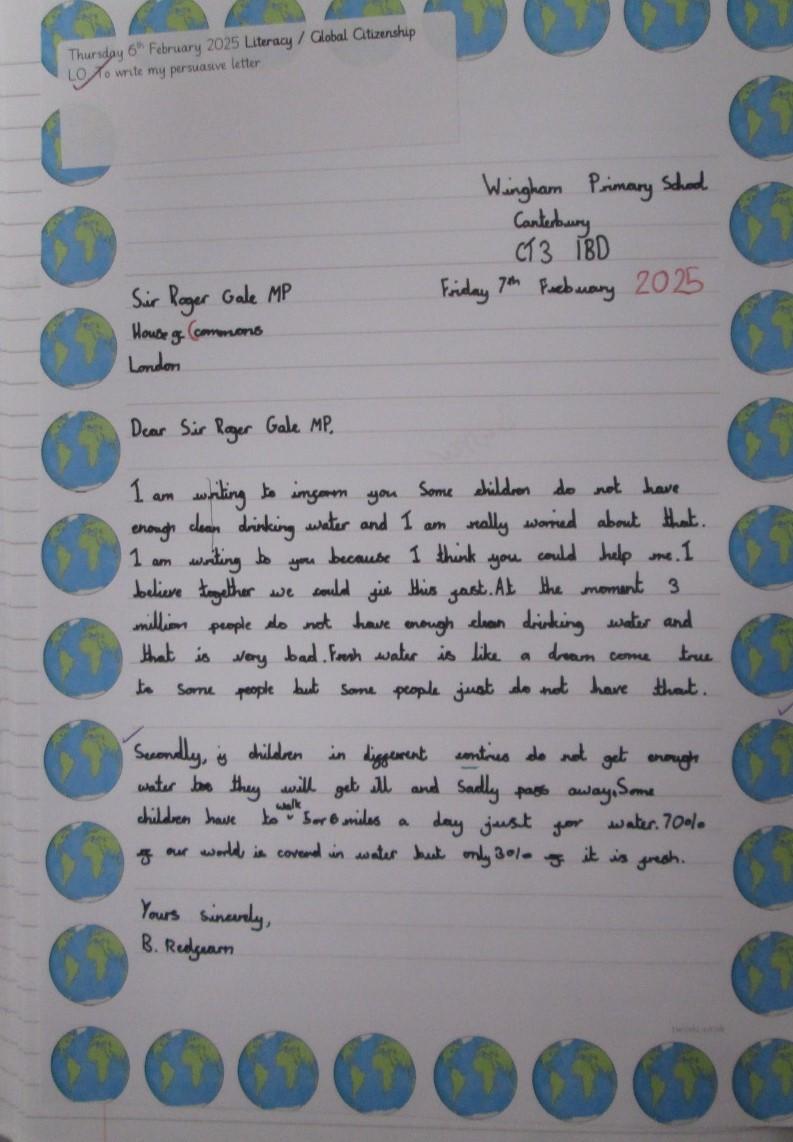 Thursday 6th February 2025 Literacy / Global Citizenship
LO To write my persuasive letter
Wingham Primary School
Canterbury
CT3 1BD
Sir Roger Gale MP
Friday 7th Feebuary 2025
House of Commons
London
Dear Sir Roger Gale MP.
I am writing to inform you Some children do not have
enough clean drinking water and I am really worried about that.
I am writing to you because I think you could help me. I
believe together we could fix this fast. At the moment 3
million people do not have enough clean drinking water and
that is very bad. Fresh water is like a dream come true
to some people but some people just do not have that.
Secondly, if children in different contries do not get enough
water they will get ill and Sadly pass away. Some
children have to walk 5 or 6 miles a day just for water. 70%
of our world is coverd in water but only 30% of it is fresh.
Yours sincerely,
B. Redfearn